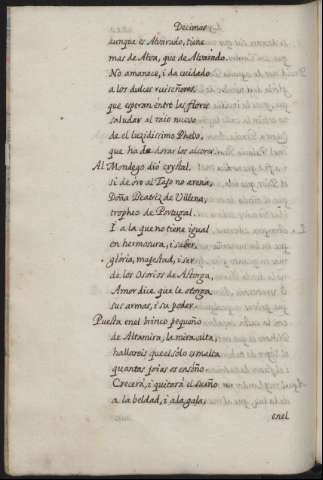 Decimas
aunque es Alvorado, tiene
mas de Alva, que de Alvorindo.
No amanece, i da cuidado
a los dulces ruiseñores,
que esperan entre las flores
saludar al raio nuevo
de el luzidissimo Phebo,
que ha de dorar los alcores.
Al Mondego dió crystal,
si de oro al Tajo no arena,
Doña Beatriz de Villena,
tropheo de Portugal.
I a la que no tiene igual
en hermosura, i saber,
gloria, majestad, i ser
de los Osorios de Astorga,
Amor dice que le otorga
sus armas, i su poder.
Puesta en el brinco pequeño
de Altamira, la mira alta,
hallareis que el sólo esmalta
quantas joias os enseño
Crecerá, i quitará el sueño
a la beldad, i a la gala,
enel